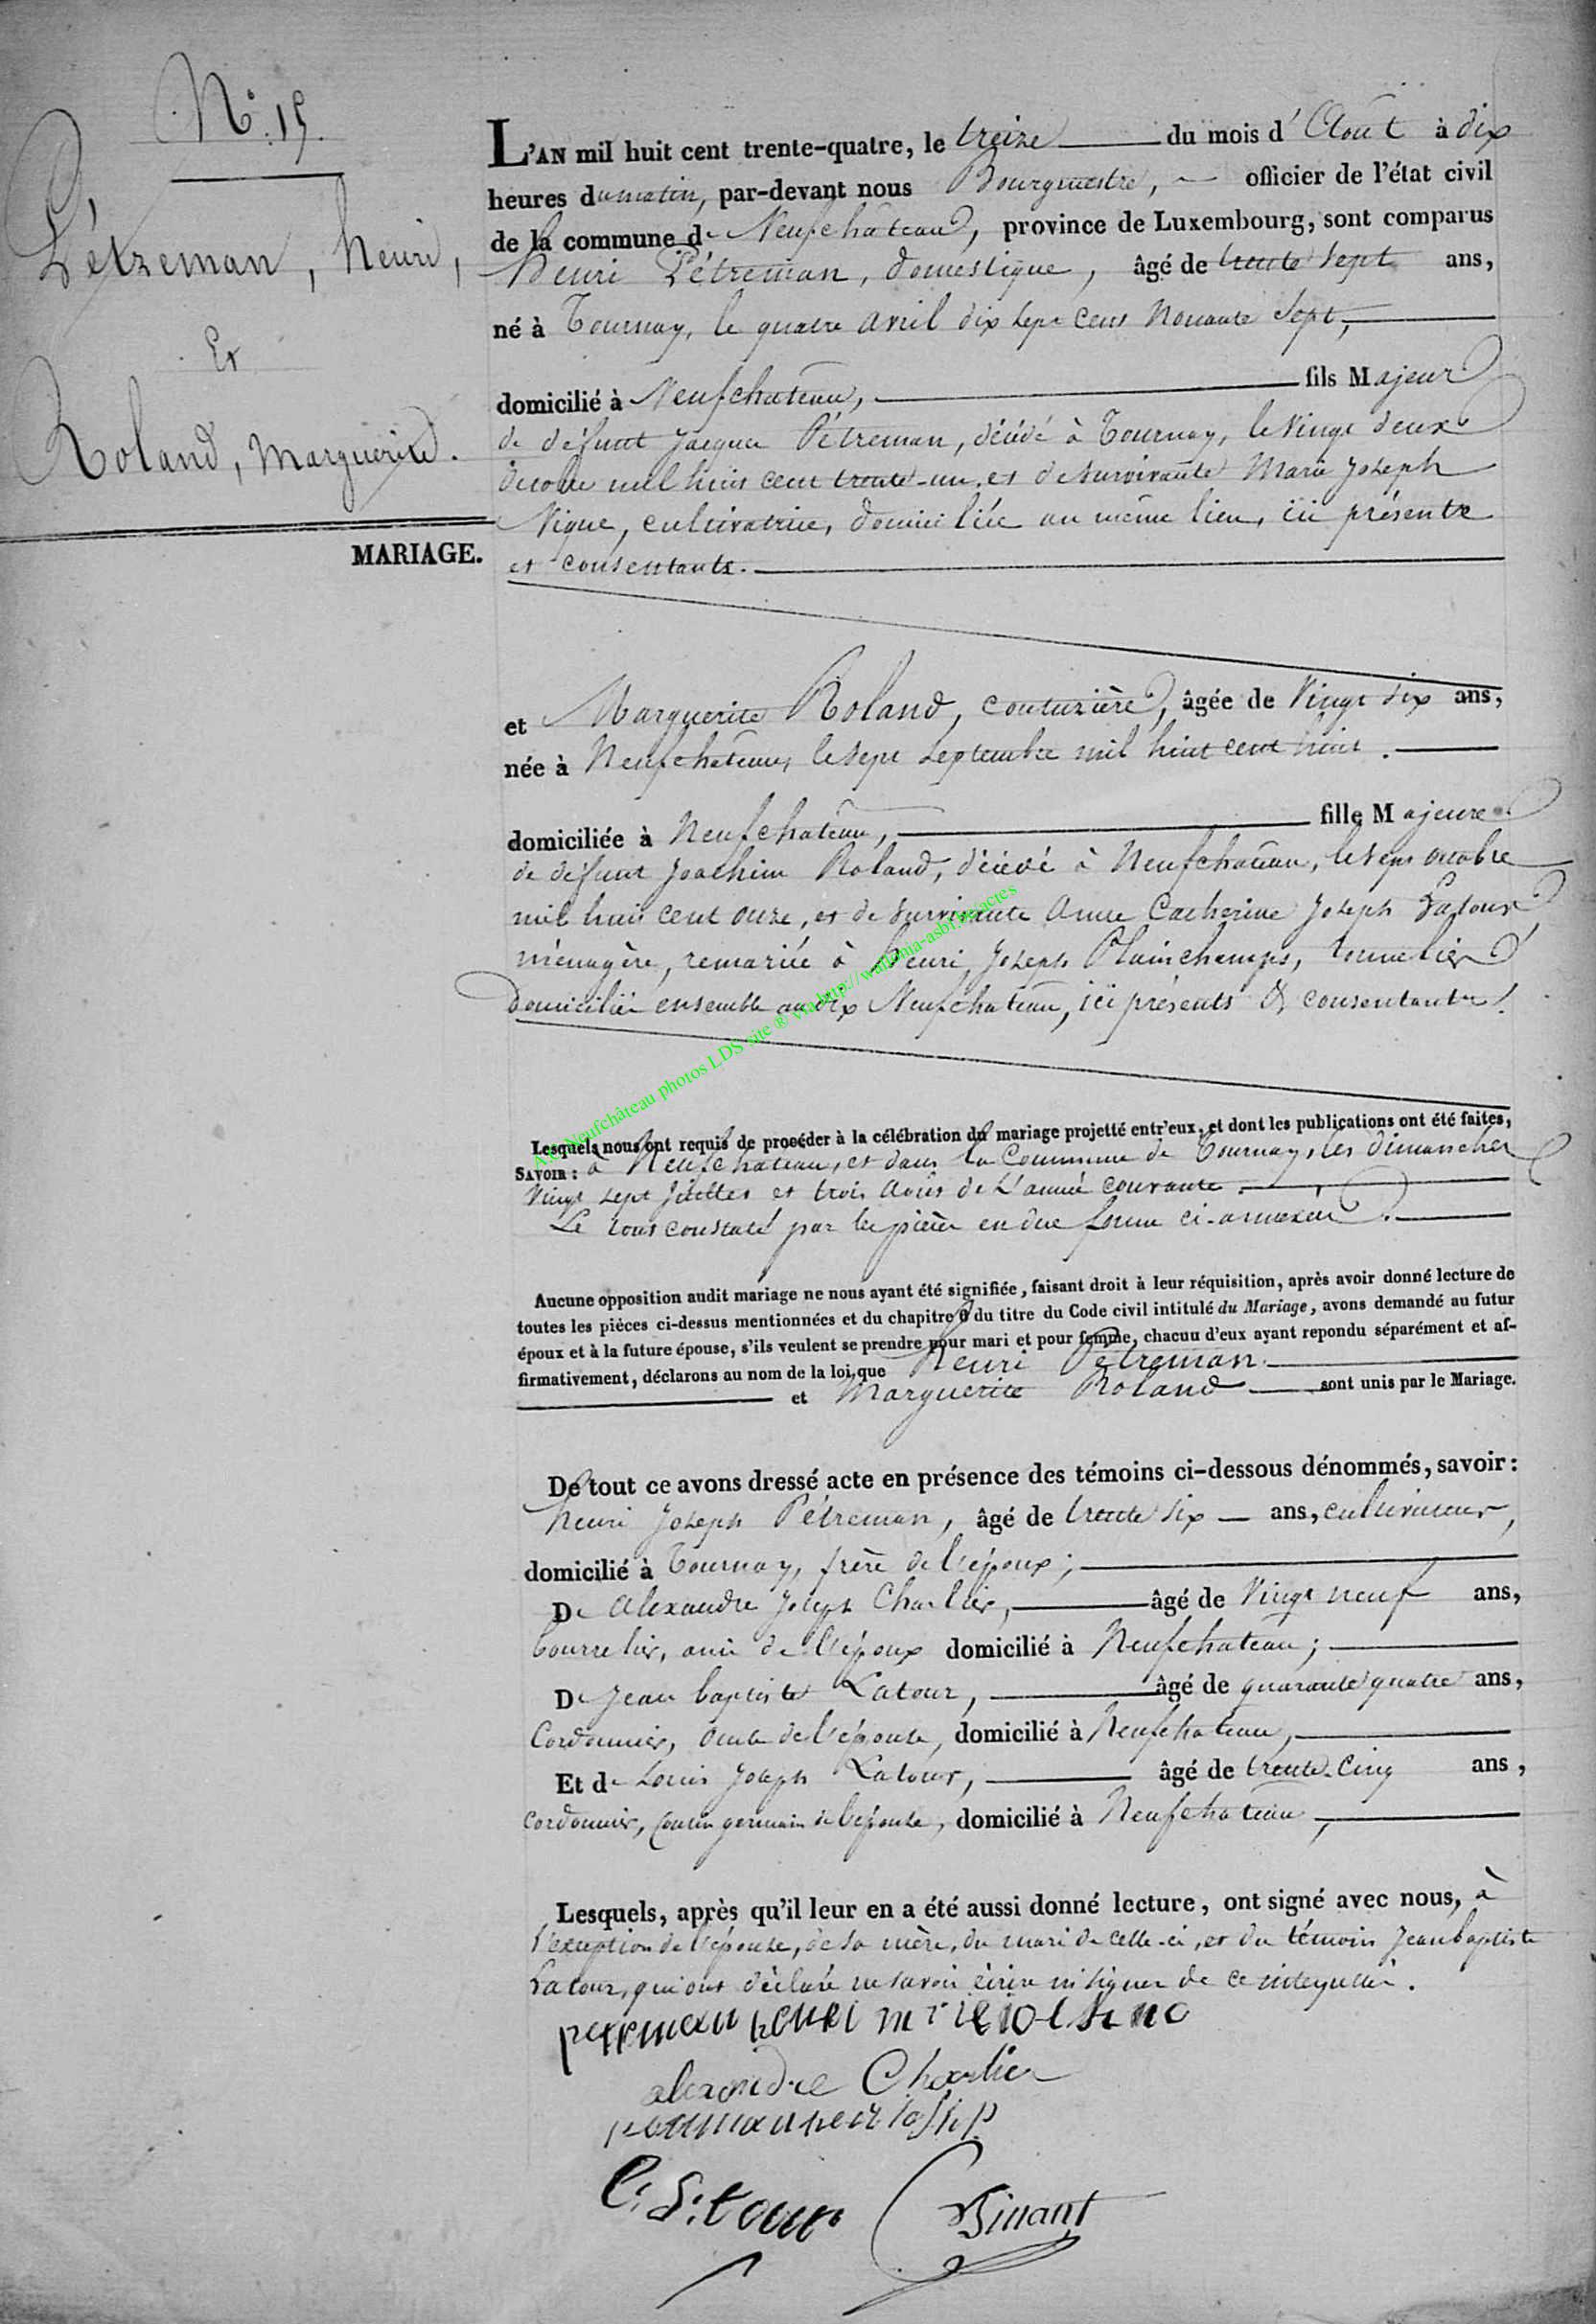 N.° 15.
Pétreman, henri,
Et
Roland, Marguerite.
MARIAGE.
L'AN mil huit cent trente-quatre, le treize du mois d'Août à dix
heures du matin, par-devant nous Bourgmestre, officier de l'état civil
de la commune de Neufchâteau, province de Luxembourg, sont comparus
Henri Pétreman, domestique, âgé de trente sept ans,
né à Tournay, le quatre avril dix sept cent nonante sept,
domicilié à Neufchateau, fils Majeur
de défunt Jacques Pétreman, décédé à Tournay, le vingt deux
octobre mil huit cent trente-un, et de survivante Marie Joseph
Nique, cultivatrice, domiciliée au même lieu, ici présente
et consentante.
et Marguerite Roland, couturière, âgée de vingt six ans,
née à Neufchateau, le sept septembre mil huit cent huit.
domiciliée à Neufchateau, fille Majeure
de défunt Joachim Roland, décédé à Neufchateau, le sept octobre
mil huit cent onze, et de survivante Anne Catherine Joseph Latour
ménagère, remariée à henri Joseph Plainchamps, tonnelier
domiciliés ensemble au dix Neufchateau, ici présents & consentants.
A.C. Neufchâteau photos LDS site ® via http://wallonia-asbl.be/actes
Lesquels nous ont requis de procéder à la célébration du mariage projetté entr'eux, et dont les publications ont été faites,
SAVOIR: à Neufchateau, et dans la Commune de Tournay, les dimanches
vingt sept juillet et trois août de l'année courante.
Le tout constaté par les pièces en due forme ci-annexées.
Aucune opposition audit mariage ne nous ayant été signifiée, faisant droit à leur réquisition, après avoir donné lecture de
toutes les pièces ci-dessus mentionnées et du chapitre 6 du titre du Code civil intitulé du Mariage, avons demandé au futur
époux et à la future épouse, s'ils veulent se prendre pour mari et pour femme, chacun d'eux ayant repondu séparément et af-
firmativement, déclarons au nom de la loi, que Henri Pétreman
et Marguerite Roland sont unis par le Mariage.
De tout ce avons dressé acte en présence des témoins ci-dessous dénommés, savoir:
henri Joseph Pétreman, âgé de trente six ans, cultivateur,
domicilié à Tournay, frère de l'époux;
De Alexandre Joseph Charlier, âgé de vingt neuf ans,
bourrelier, ami de l'époux domicilié à Neufchateau;
De Jean baptiste Latour, âgé de quarante quatre ans,
Cordonnier, oncle de l'épouse, domicilié à Neufchateau,
Et de Louis Joseph Latour, âgé de trente-cinq ans,
cordonnier, cousin germain de l'épouse, domicilié à Neufchateau,
Lesquels, après qu'il leur en a été aussi donné lecture, ont signé avec nous, à
l'exception de l'épouse, de sa mère, du mari de celle-ci, et du témoin Jean baptiste
Latour, qui ont déclaré ne savoir écrire ni signer de ce interpellés.
petreman henri
alexandre Charlier